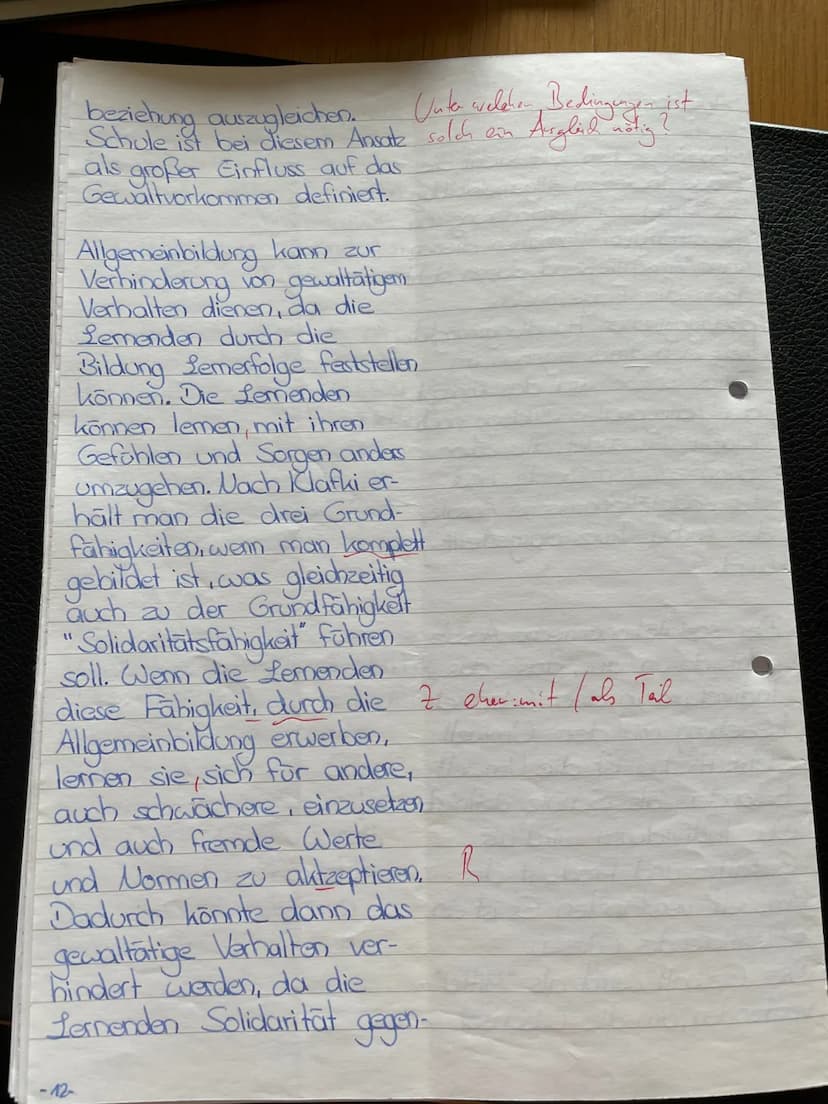 beziehung auszugleichen. Unter welchen Bedingungen ist
Schule ist bei diesem Ansatz solch ein Ausgleich nötig?
als großer Einfluss auf das
Gewaltvorkommen definiert.
Allgemeinbildung kann zur
Verhinderung von gewaltätigem
Verhalten dienen, da die
Lernenden durch die
Bildung Lernerfolge feststellen
können. Die Lernenden
können lernen, mit ihren
Gefühlen und Sorgen anders
umzugehen. Nach Klafki er-
hält man die drei Grund-
fähigkeiten, wenn man komplett
gebildet ist, was gleichzeitig
auch zu der Grundfähigkeit
"Solidaritätsfähigkeit" führen
soll. Wenn die Lernenden
diese Fähigkeit, durch die Z eher: mit / als Teil
Allgemeinbildung erwerben,
lernen sie, sich für andere,
auch schwächere, einzusetzen
und auch fremde Werte
und Normen zu aktzeptieren. R
Dadurch könnte dann das
gewaltätige Verhalten ver-
hindert werden, da die
Lernenden Solidarität gegen-
-12-